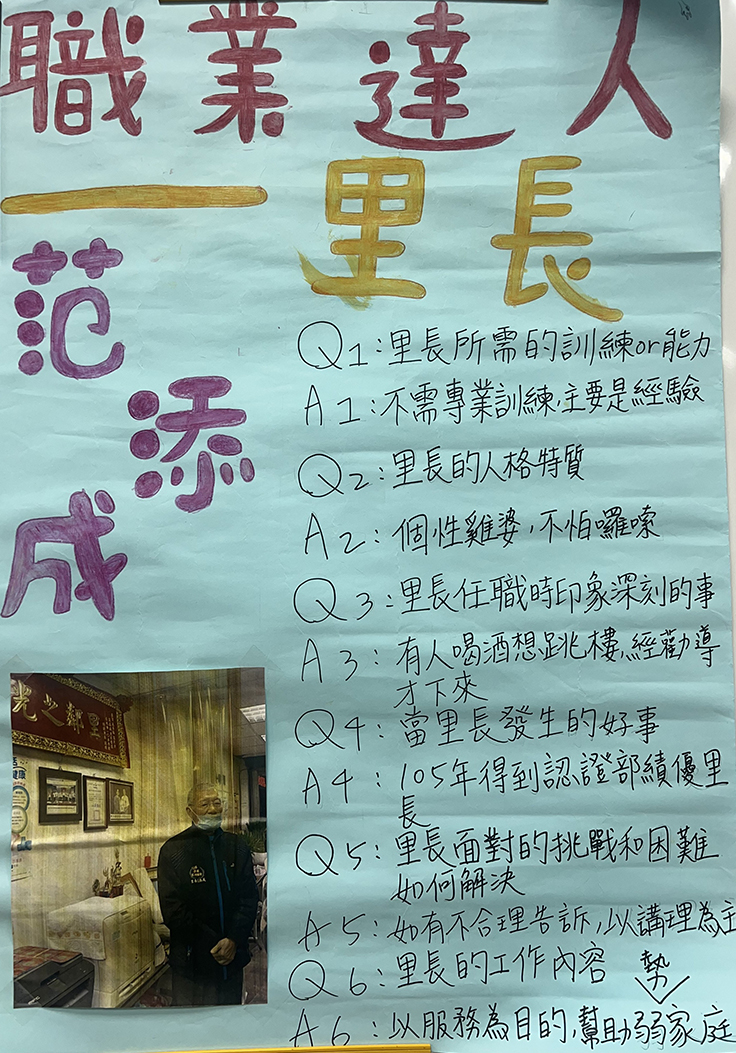 職業達人
一里長
范添成
Q1:里長所需的訓練or能力
A1:不需專業訓練,主要是經驗
Q2:里長的人格特質
A2:個性雞婆,不怕囉嗦
Q3:里長任職時印象深刻的事
A3:有人喝酒想跳樓,經勸導
才下來
Q4:當里長發生的好事
A4:105年得到認證部績優里
長
Q5:里長面對的挑戰和困難
如何解決
A5:如有不合理告訴,以講理為主
Q6:里長的工作內容
勢
A6:以服務為目的,幫助弱家庭
光之鄰里